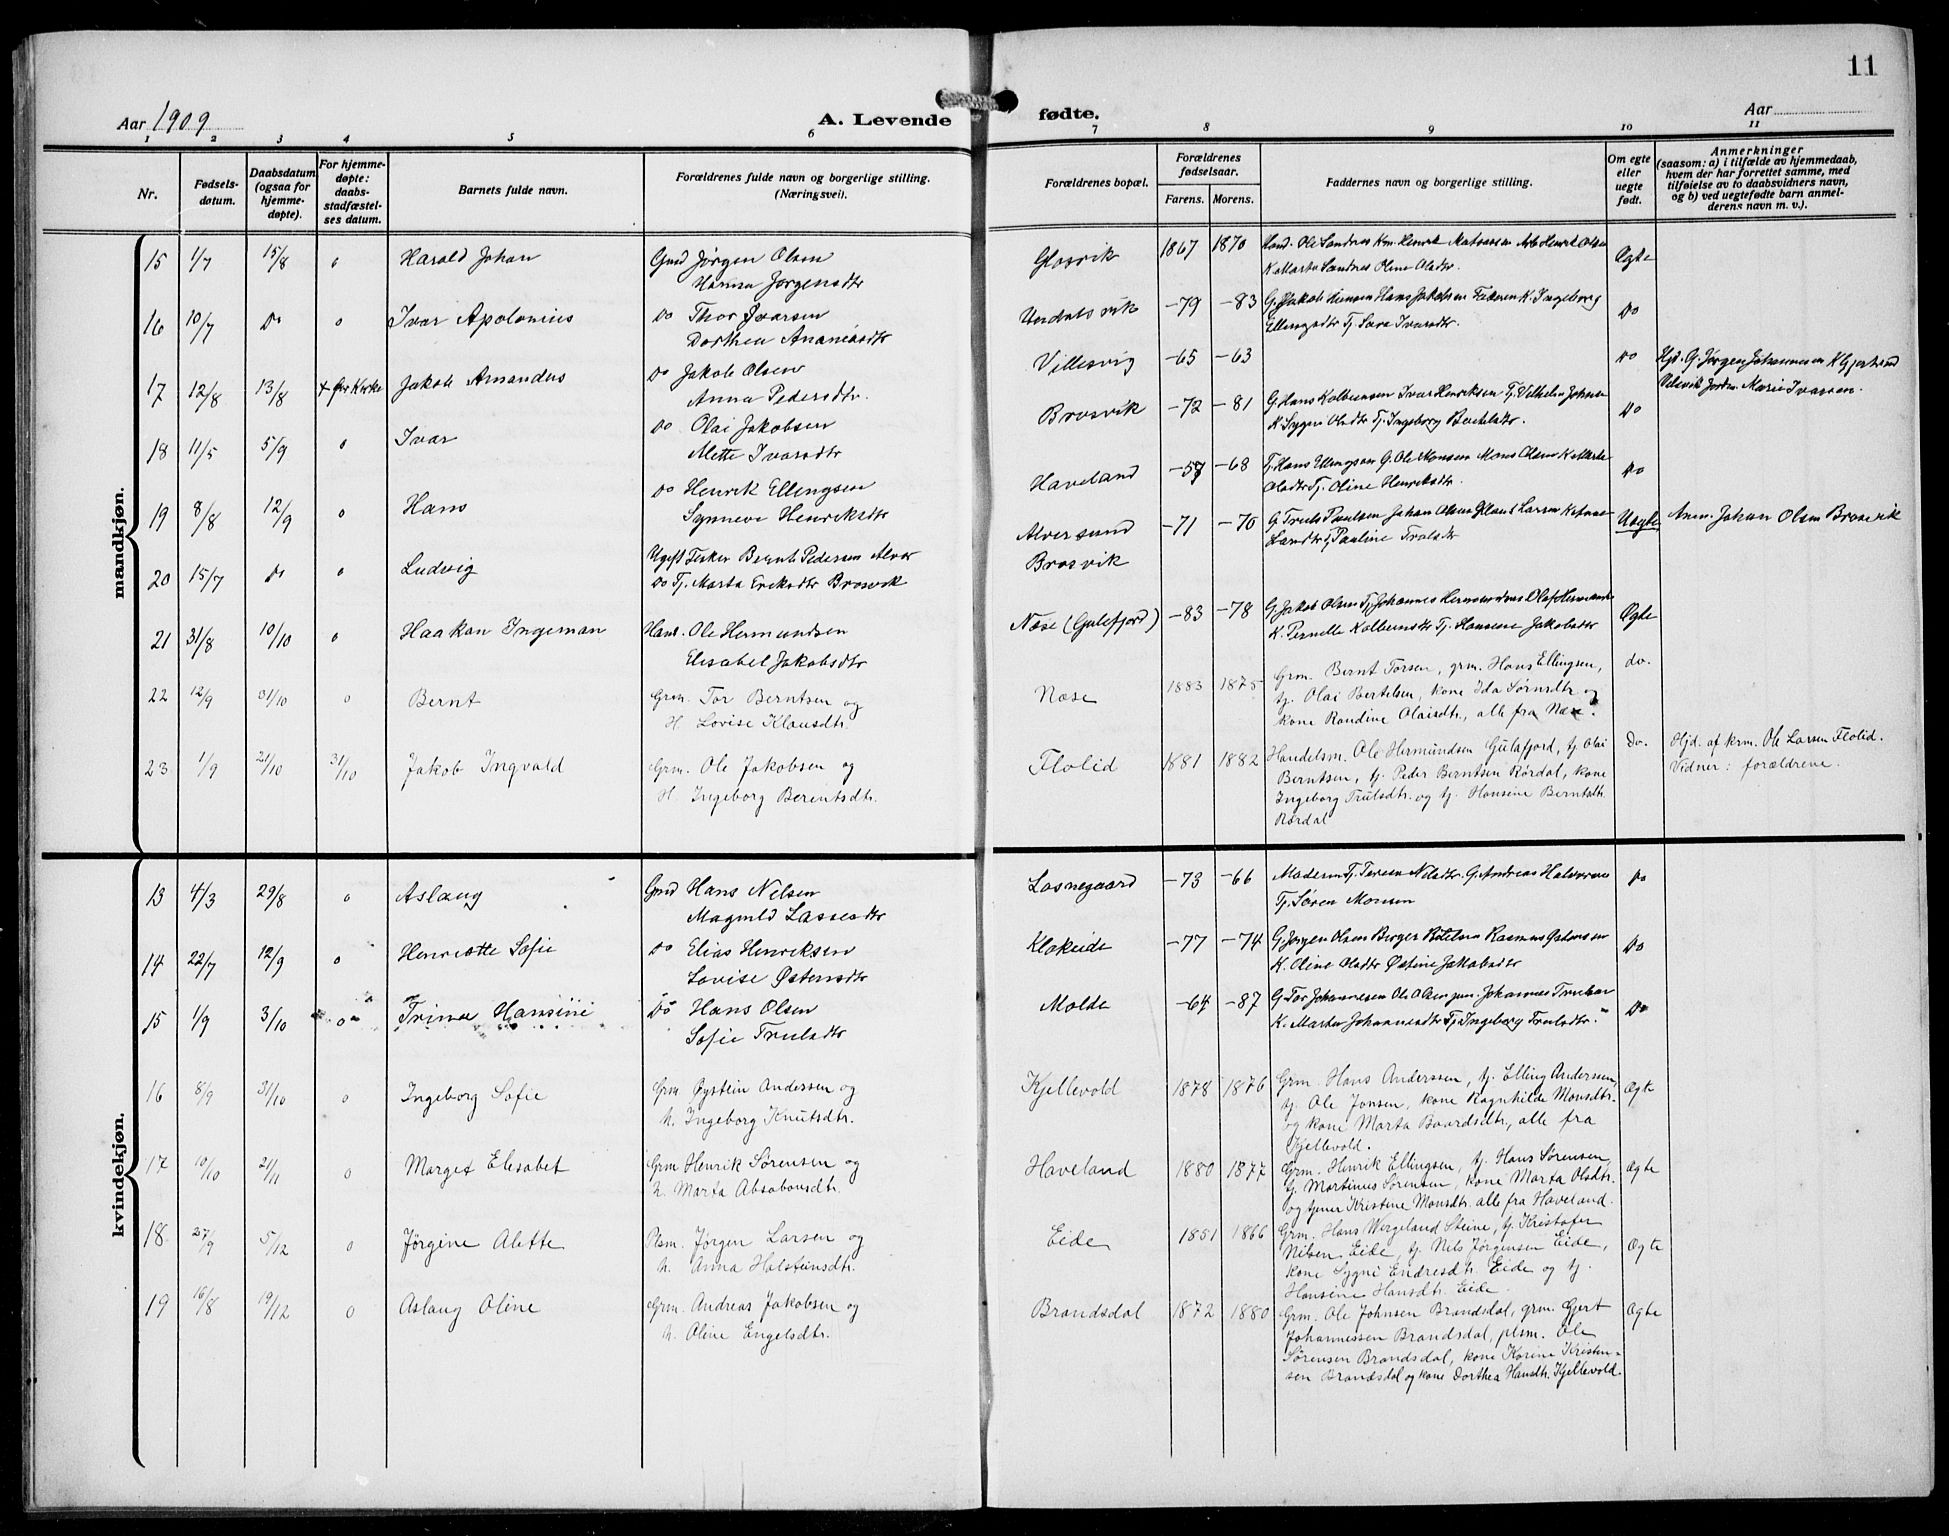 11
Aar 1909
A. Levende
fødte.
Aar
1 2 3 4 5 6 7 8 9 10 11
Nr.
Fødsels-
datum.
Daabsdatum
(ogsaa for
hjemme-
døpte).
For hjemme-
døpte:
daabs-
stadfæstel-
ses datum.
Barnets fulde navn.
Forældrenes fulde navn og borgerlige stilling.
(Næringsvei).
Forældrenes bopæl.
Forældrenes
fødselsaar.
Farens. Morens.
Faddernes navn og borgerlige stilling.
Om egte
eller
uegte
født.
Anmerkninger
(saasom: a) i tilfælde av hjemmedaab,
hvem der har forrettet samme, med
tilføielse av to daabsvidners navn,
og b) ved uegtefødte barn anmel-
derens navn m. v.).
mandkjøn.
15 1/7 15/8 o Harald Johan Gmd Jørgen Olsen 1867 1870 Ole Sandnes Henrik Henrik Olsen Øgte
Hanna Jørgensdtr K Marta Sandnes Oline Olsdtr.
16 10/7 Do o Ivar Apolonius Do Thor Ivarsen -79 -83 G. Jakob Hans Jakobsen Faderen K. Ingeborg Do
Dorthea Ananiasdtr Ellingsdtr Tj. Sara Ivarsdtr.
17 12/8 13/8 Jakob Amandus Do Jakob Olsen Villesvig -65 -63 Do Hjd. G. Jørgen Johannesen K Gjertrud
Anna Pedersdtr. Marie Ivarsen.
18 11/5 5/9 o Ivar Do Olai Jakobsen Brosvik -72 -81 G. Hans Kolbensen Ivar Henriksen Tj. Vilhelm Johnsen Do
Mette Ivarsdtr K Sygni Olsdtr Tj. Ingeborg
19 8/8 12/9 o Hans Do Henrik Ellingsen Haveland -57 -68 Tj. Hans Ellingsen G. Ole Monsen Mons Olsen K Marta Do
Synneve Henriksdtr Olsdtr Tj. Oline Henriksdtr.
20 15/7 Do o Ludvig Ugift Fisker Bernt Pedersen Alver Alversund -71 -70 G Truls Paulsen Johan Olsen Klaus Larsen Uegte Anm. Johan Olsen Brosvik
Do Tj. Marta Eriksdtr Brosvik Brosvik Tj Pauline Trulsdtr
21 31/8 10/10 o Haakon Ingeman Hand. Ole Hermundsen Næse (Gulefjord) -83 -78 G. Jakob Olsen Tj. Johannes Hermundsen Olaf Hermunds Øgte
Elisabet Jakobsdtr K. Pernelle Kolbensdtr Tj. Hansine Jakobsdtr
22 12/9 31/10 o Bernt Grm. Tor Berntsen og Næse 1883 1875 Grm. Bernt Torsen, grm. Hans Ellingsen, do.
H. Lovise Klausdtr. tj. Olai Bertelsen, kone Ida Sørnsdtr og
kone Randine Olaisdtr., alle fra Næse.
23 1/9 21/10 31/10 Jakob Ingvald Grm. Ole Jakobsen og Flolid 1881 1882 Handelsm. Ole Hermundsen Gulafjord, tj. Olai Do. Hjd. af krm. Ole Larsen Flolid.
H. Ingeborg Berentsdtr. Berntsen, tj. Peder Berntsen Rørdal, kone Vidner: forældrene.
Ingeborg Trulsdtr. og tj. Hansine Berntsdtr.
Rørdal
kvindekjøn.
13 4/3 29/8 o Aslaug Gmd Hans Nelsen Losnegaard -73 -66 Moderen Tj. Nilsdtr G. Andreas Halvorsen Do
Magnild Lassesdtr Tj. Søren Monsen
14 22/7 12/9 o Henriette Sofie Do Elias Henriksen Klakeide -77 -74 G. Jørgen Olsen Berger Rasmus Do
Lovise Østensdtr K. Oline Olsdtr Østine Jakobsdtr
15 1/9 3/10 o Trine Hansine Do Hans Olsen Molde -64 -87 G Tor Johannesen Ole Olsen jun. Johannes Trulsen Do
Sofie Trulsdtr K. Marta Johannesdtr Tj. Ingeborg Trulsdtr.
16 8/9 31/10 o Ingeborg Sofie Grm Øystein Anderssen og Kjellevold 1878 1876 Grm. Hans Anderssen, tj. Elling Andersen, Ægte
h. Ingeborg Knutsdtr. tj. Ole Jonsen, kone Ragnhilde Monsdtr.
og kone Marta Baardsdtr., alle fra
Kjellevold.
17 10/10 21/11 o Marget Elesabet Grm Henrik Sørensen og Haveland 1880 1877 Grm. Henrik Ellingsen, tj. Hans Sørensen, Ægte
h. Marta Absalonsdtr. tj. Martinus Sørensen, kone Marta Olsdtr.
og tjener Kristine Monsdtr. alle fra Haveland.
18 27/9 5/12 o Jørgine Alette Plsm. Jørgen Larsen og Eide 1851 1866 Grm. Hans Wergeland Steine, tj. Kristofer Ægte
h. Anna Holsteinsdtr. Nilsen Eide, tj. Nels Jørgensen Eide,
kone Sygni Endresdtr. Eide og tj.
Hansine Hansdtr. Eide.
19 16/8 19/12 o Aslaug Oline Grm. Andreas Jakobsen og Brandsdal 1872 1880 Grm. Ole Johnsen Brandsdal, grm. Gjert Ægte
h. Oline Engelsdtr. Johannessen Brandsdal, plsm. Ole
Sørensen Brandsdal, kone Karine Kristen-
sen Brandsdal og kone Dorthea Hansdtr. Kjellevold.